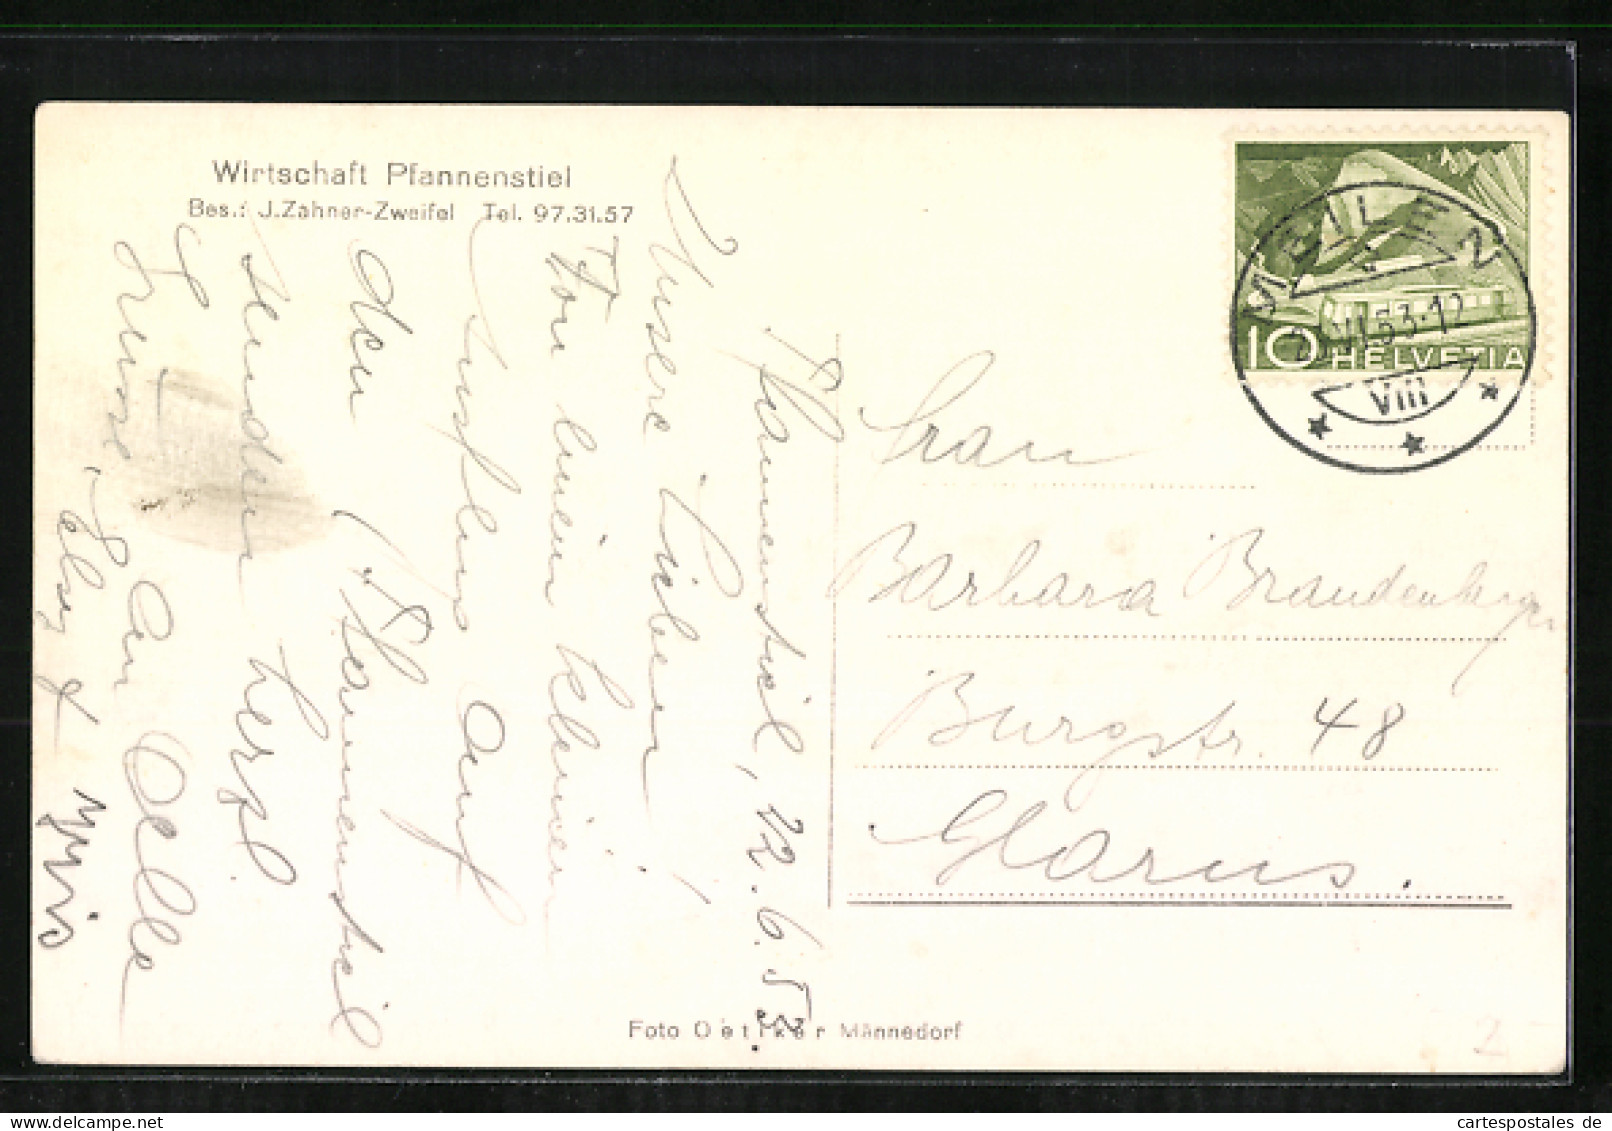 Wirtschaft Pfannenstiel
Bes.: J.Zahner-Zweifel Tel. 97.31.57
Pfannenstiel, 22.6.53.
Unsere Lieben,
Von einem kleinen
Ausflug auf
den Pfannenstiel
senden herzl.
Grüsse, an Alle
MEILEN
VI.53-12
VIII
10 HELVETIA
Frau
Barbara Brandenberger
Burgstr. 48
Glarus.
Foto Oetiker Männedorf
cartespostales de